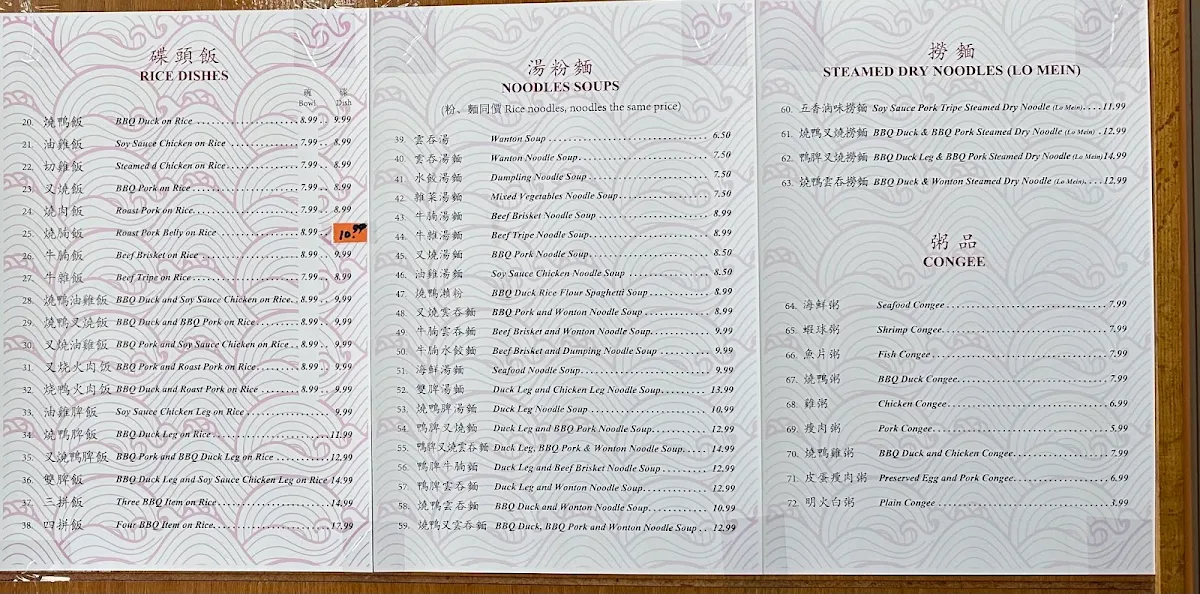 碟頭飯
RICE DISHES
碗 碟
Bowl Dish
20. 燒鴨飯 BBQ Duck on Rice 8.99 9.99
21. 油雞飯 Soy Sauce Chicken on Rice 7.99 8.99
22. 切雞飯 Steamed d Chicken on Rice 7.99 8.99
23. 叉燒飯 BBQ Pork on Rice 7.99 8.99
24. 燒肉飯 Roast Pork on Rice 7.99 8.99
25. 燒腩飯 Roast Pork Belly on Rice 8.99 10.99
26. 牛腩飯 Beef Brisket on Rice 8.99 9.99
27. 牛雜飯 Beef Tripe on Rice 7.99 8.99
28. 燒鴨油雞飯 BBQ Duck and Soy Sauce Chicken on Rice 8.99 9.99
29. 燒鴨叉燒飯 BBQ Duck and BBQ Pork on Rice 8.99 9.99
30. 叉燒油雞飯 BBQ Pork and Soy Sauce Chicken on Rice 8.99 9.99
31. 叉烧火肉饭 BBQ Pork and Roast Pork on Rice 8.99 9.99
32. 烧鸭火肉饭 BBQ Duck and Roast Pork on Rice 8.99 9.99
33. 油雞脾飯 Soy Sauce Chicken Leg on Rice 9.99
34. 燒鴨脾飯 BBQ Duck Leg on Rice 11.99
35. 叉燒鴨脾飯 BBQ Pork and BBQ Duck Leg on Rice 12.99
36. 雙脾飯 BBQ Duck Leg and Soy Sauce Chicken Leg on Rice 14.99
37. 三拼飯 Three BBQ Item on Rice 14.99
38. 四拼飯 Four BBQ Item on Rice 17.99
湯粉麵
NOODLES SOUPS
(粉、麵同價 Rice noodles, noodles the same price)
39. 雲吞湯 Wanton Soup 6.50
40. 雲吞湯麵 Wanton Noodle Soup 7.50
41. 水餃湯麵 Dumpling Noodle Soup 7.50
42. 雜菜湯麵 Mixed Vegetables Noodle Soup 7.50
43. 牛腩湯麵 Beef Brisket Noodle Soup 8.99
44. 牛雜湯麵 Beef Tripe Noodle Soup 8.99
45. 叉燒湯麵 BBQ Pork Noodle Soup 8.50
46. 油雞湯麵 Soy Sauce Chicken Noodle Soup 8.50
47. 燒鴨瀨粉 BBQ Duck Rice Flour Spaghetti Soup 8.99
48. 叉燒雲吞麵 BBQ Pork and Wonton Noodle Soup 8.99
49. 牛腩雲吞麵 Beef Brisket and Wonton Noodle Soup 9.99
50. 牛腩水餃麵 Beef Brisket and Dumping Noodle Soup 9.99
51. 海鮮湯麵 Seafood Noodle Soup 9.99
52. 雙脾湯麵 Duck Leg and Chicken Leg Noodle Soup 13.99
53. 燒鴨脾湯麵 Duck Leg Noodle Soup 10.99
54. 鴨脾叉燒麵 Duck Leg and BBQ Pork Noodle Soup 12.99
55. 鴨脾叉燒雲吞麵 Duck Leg, BBQ Pork & Wonton Noodle Soup 14.99
56. 鴨脾牛腩麵 Duck Leg and Beef Brisket Noodle Soup 12.99
57. 鴨脾雲吞麵 Duck Leg and Wonton Noodle Soup 12.99
58. 燒鴨雲吞麵 BBQ Duck and Wonton Noodle Soup 10.99
59. 燒鴨叉雲吞麵 BBQ Duck, BBQ Pork and Wonton Noodle Soup 12.99
撈麵
STEAMED DRY NOODLES (LO MEIN)
60. 五香滷味撈麵 Soy Sauce Pork Tripe Steamed Dry Noodle (Lo Mein) 11.99
61. 燒鴨叉燒撈麵 BBQ Duck & BBQ Pork Steamed Dry Noodle (Lo Mein) 12.99
62. 鴨脾叉燒撈麵 BBQ Duck Leg & BBQ Pork Steamed Dry Noodle (Lo Mein) 14.99
63. 燒鴨雲吞撈麵 BBQ Duck & Wonton Steamed Dry Noodle (Lo Mein) 12.99
粥品
CONGEE
64. 海鮮粥 Seafood Congee 7.99
65. 蝦球粥 Shrimp Congee 7.99
66. 魚片粥 Fish Congee 7.99
67. 燒鴨粥 BBQ Duck Congee 7.99
68. 雞粥 Chicken Congee 6.99
69. 瘦肉粥 Pork Congee 5.99
70. 燒鴨雞粥 BBQ Duck and Chicken Congee 7.99
71. 皮蛋瘦肉粥 Preserved Egg and Pork Congee 6.99
72. 明火白粥 Plain Congee 3.99